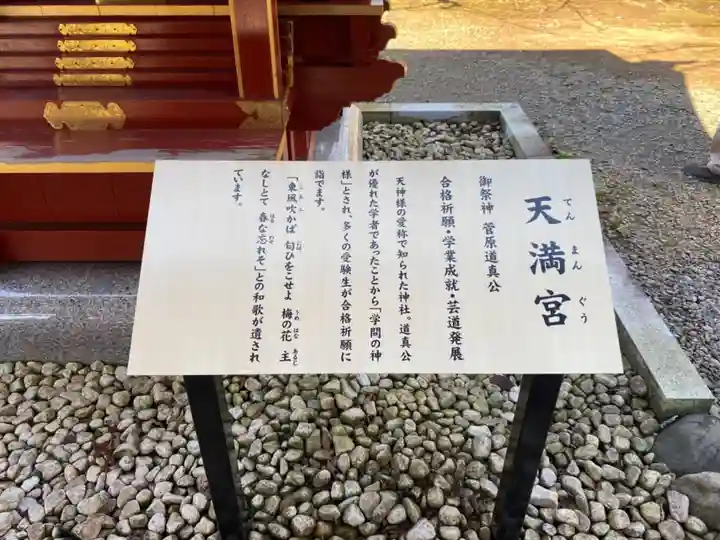 天満宮
てんまんぐう
御祭神 菅原道真公
合格祈願・学業成就・芸道発展
天神様の愛称で知られた神社。道真公
が優れた学者であったことから「学問の神
様」とされ、多くの受験生が合格祈願に
詣でます。
「東風吹かば 匂ひをこせよ 梅の花 主
なしとて 春な忘れそ」との和歌が遺され
ています。